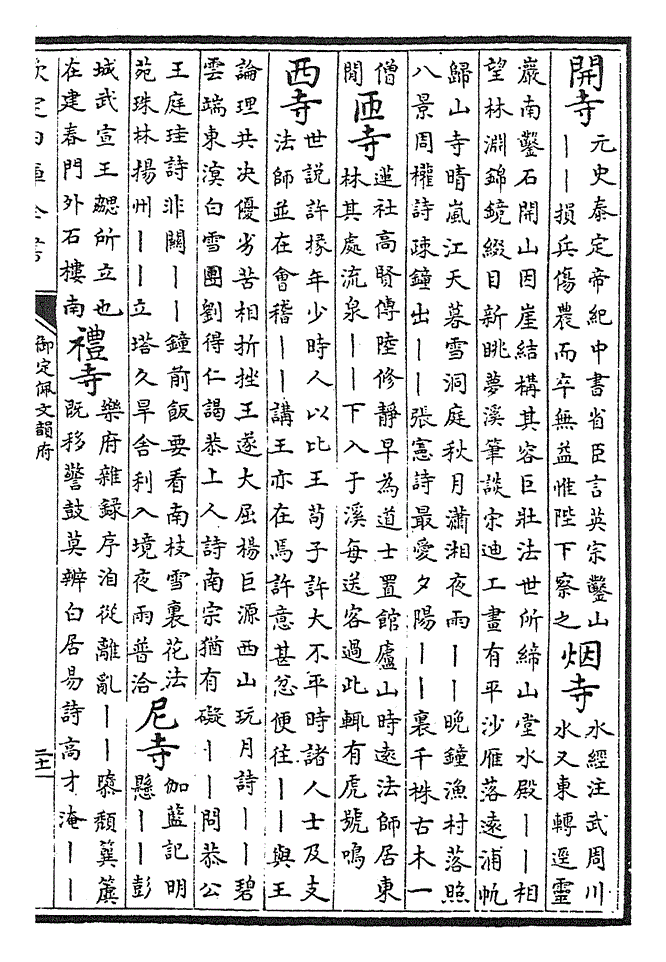 開寺
元史泰定帝紀中書省臣言英宗鑿山
——損兵傷農而卒無益惟陛下察之
烟寺
水經注武周川
水又東轉逕靈
巖南鑿石開山因崖結構其容巨壯法世所締山堂水殿——相
望林淵錦鏡綴目新眺夢溪筆談宋迪工畫有平沙雁落遠浦帆
歸山寺晴嵐江天暮雪洞庭秋月瀟湘夜雨——晚鐘漁村落照
八景周權詩疎鐘出——張憲詩最愛夕陽——裏千株古木一
僧
閒
匝寺
蓮社高賢傳陸修靜早為道士置館廬山時遠法師居東
林其處流泉——下入于溪每送客過此輒有虎號鳴
西寺
世說許掾年少時人以比王苟子許大不平時諸人士及支
法師並在會稽——講王亦在焉許意甚忿便往——與王
論理共决優劣苦相折挫王遂大屈楊巨源西山玩月詩——碧
雲端東溟白雪團劉得仁謁恭上人詩南宗猶有礙——問恭公
王庭珪詩非關——鐘前飯要看南枝雪裏花法
苑珠林揚州——立塔久旱舍利入境夜雨普洽
尼寺
伽藍記明
懸——彭
城武宣王勰所立也
在建春門外石樓南
禮寺
樂府雜録序洎從離亂——隳頽簨簴
既移警鼓莫辨白居易詩高才淹——
欽定四庫全書
御定佩文韻府